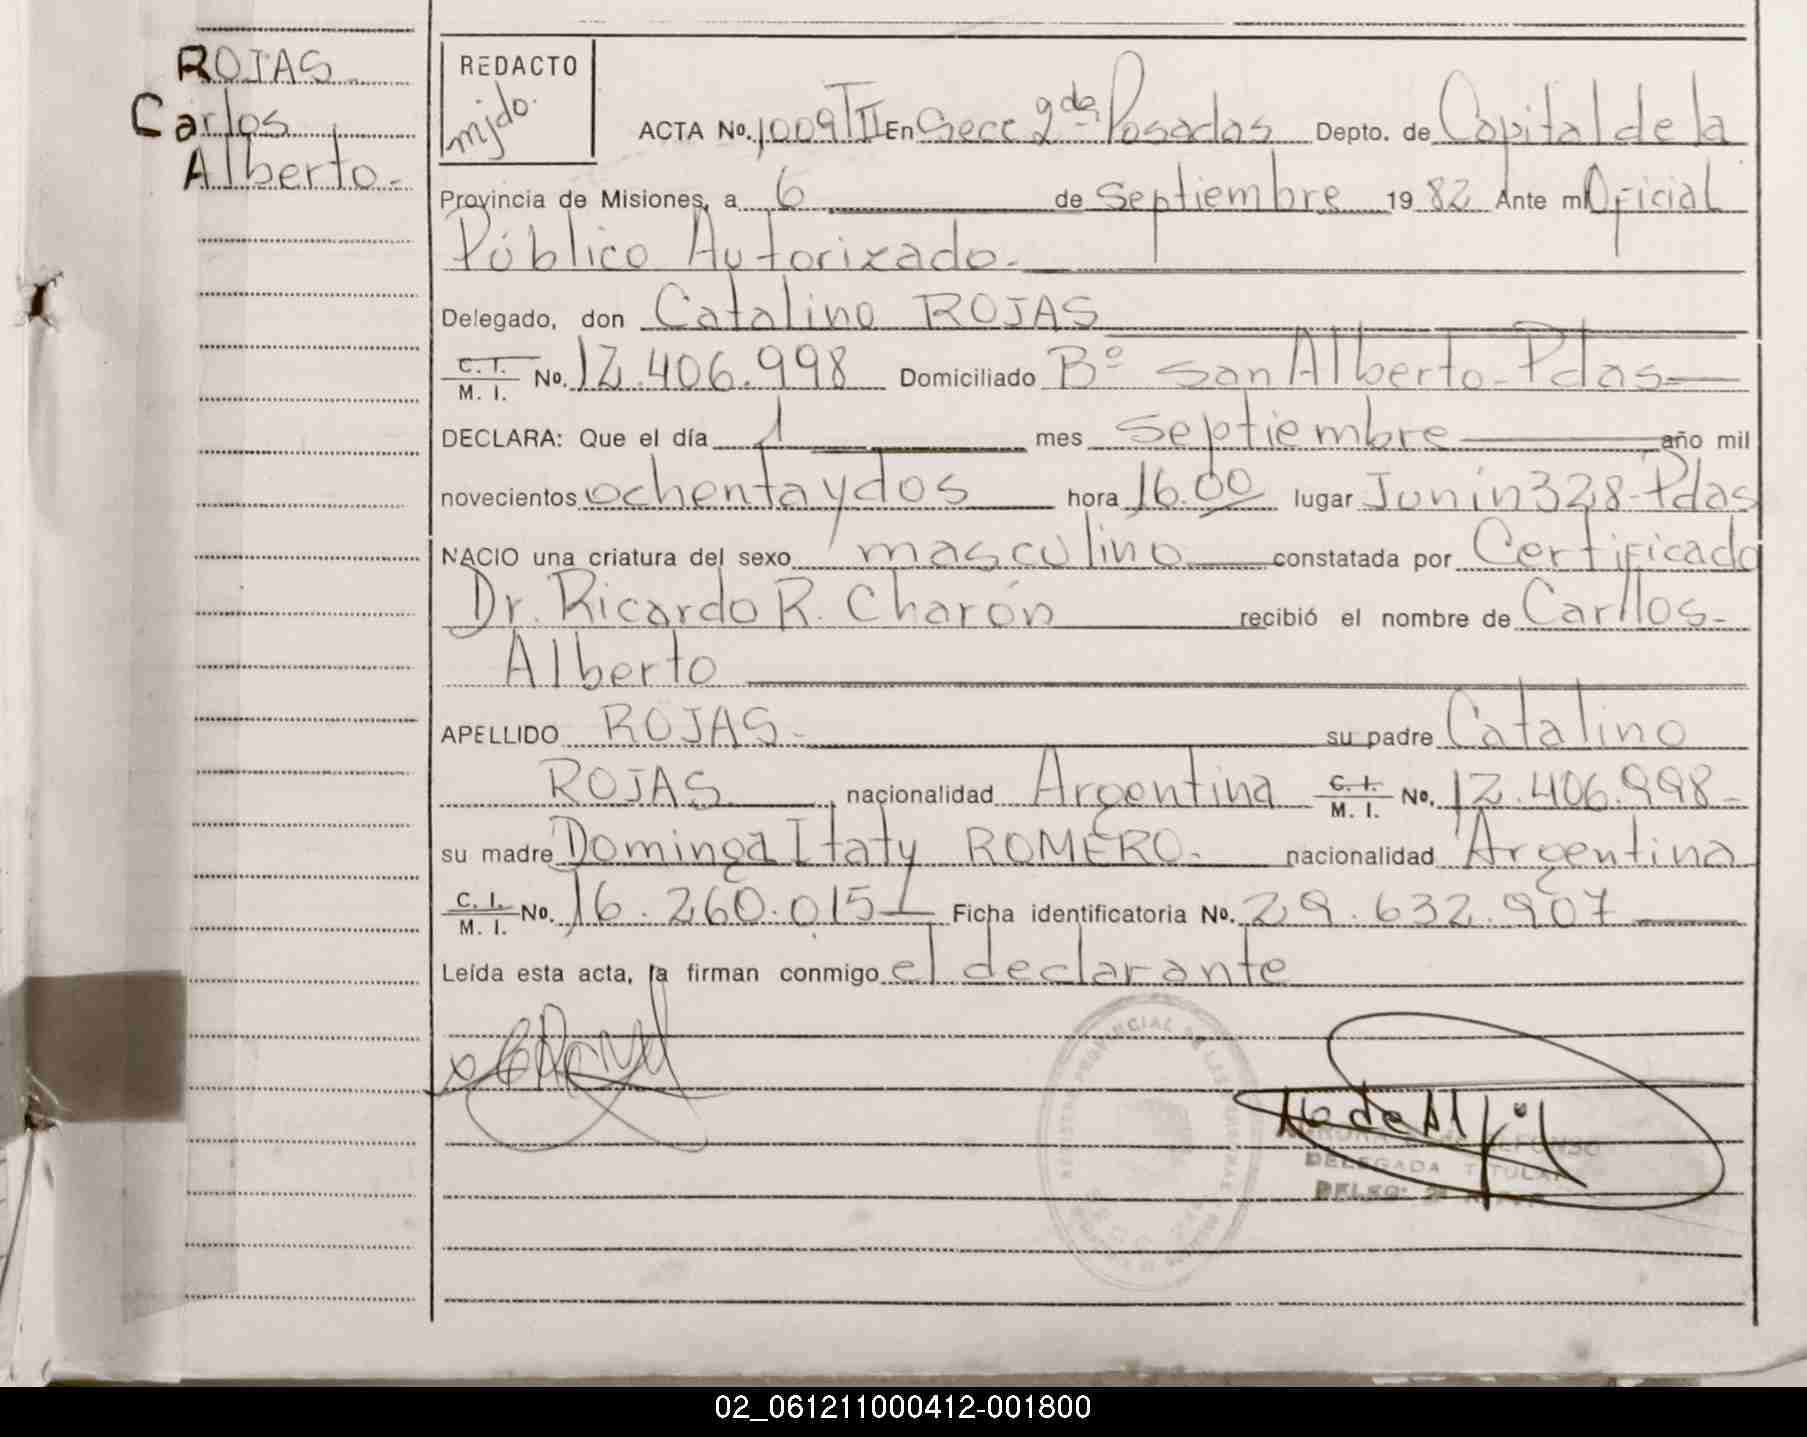 ROJAS
Carlos
Alberto.-
REDACTO
mjdo.
ACTA No. 1009TII En Secc 2da. Posadas Depto. de Capital de la
Provincia de Misiones, a 6 de Septiembre 1982 Ante mi Oficial
Público Autorizado.-
Delegado, don Catalino ROJAS
C. I. M. I. No. 12.406.998 Domiciliado Bº San Alberto-Pdas
DECLARA: Que el día 1 mes Septiembre año mil
novecientos ochenta y dos hora 16.00 lugar Junin 328-Pdas
NACIO una criatura del sexo masculino constatada por Certificado
Dr. Ricardo R. Charón recibió el nombre de Carllos-
Alberto
APELLIDO ROJAS.- su padre Catalino
ROJAS nacionalidad Argentina C. I. M. I. No. 12.406.998-
su madre Dominga Itaty ROMERO.- nacionalidad Argentina
C. I. M. I. No. 16.260.015 Ficha identificatoria No. 29.632.907
Leída esta acta, la firman conmigo el declarante
REGISTRO PROVINCIAL DE LAS PERSONAS
ALFONSO
DELEGADA TITULAR
02_061211000412-001800